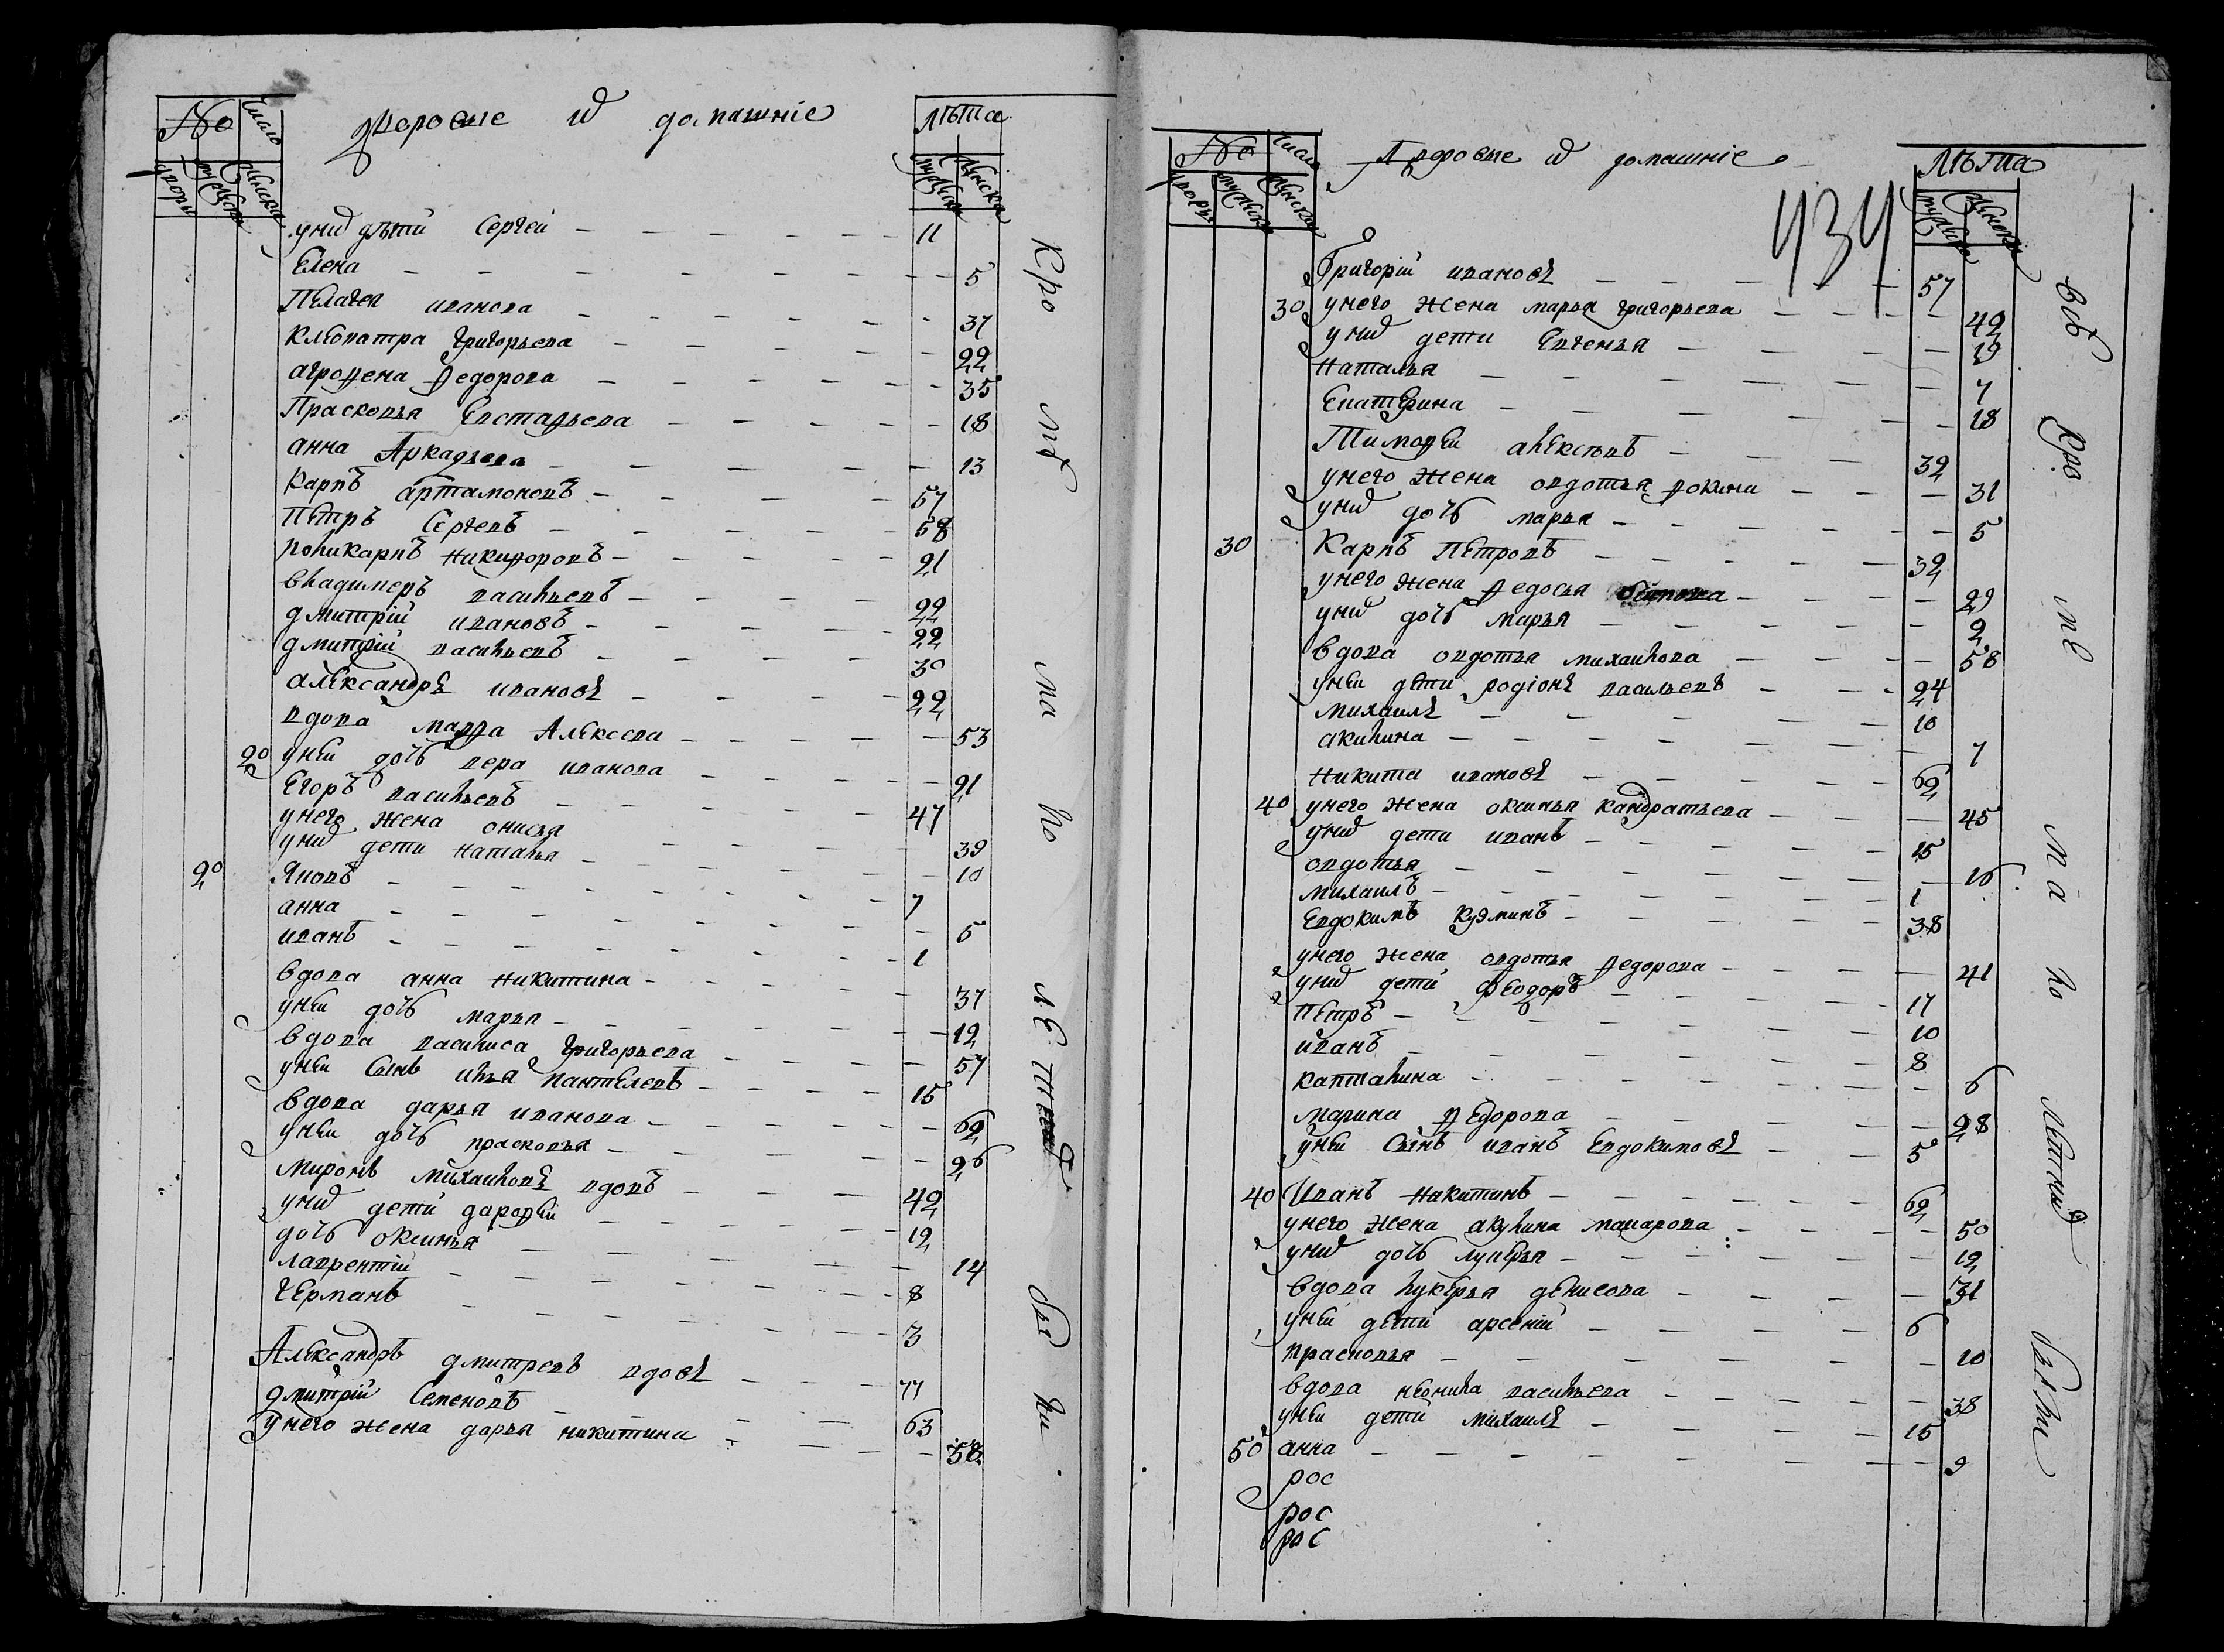 № Число Дворовые и домашніе Лѣта
дворы мужска женска мужска женска
у них дѣти Сергеи 11
Елена 5
Пелагея иванова 37
Клеопатра григорьева 22
агрофена федорова 35
Прасковья Евстафьева 18
анна Аркадьева 13
Карпъ артамоновъ 57
Петръ Сергевъ 58
поликарпъ никифоровъ 21
владимеръ васильевъ 22
дмитрій ивановъ 22
дмитрій васильевъ 30
александръ ивановъ 22
вдова марфа Алексеева 53
20 у неи дочь вера иванова 21
Егоръ васильевъ 47
у него жена онисья 39
у них дети наталья 10
20 Яковъ 7
анна 5
иванъ 1
вдова анна никитина 37
у неи дочь марья 12
вдова василиса григорьева 57
у неи сынъ илья пантелевъ 15
вдова дарья иванова 62
у неи дочь прасковья 26
миронъ михаиловъ вдовъ 42
у них дети дарофеи 12
дочь оксинья 14
лаврентіи 8
германъ 3
Александръ дмитревъ вдовъ 77
дмитріи Семеновъ 63
у него жена дарья никитина 58
Кро мѣ ма ло ле тных бы ли
№ Число Дворовые и домашніе Лѣта
434
дворы мужска женска мужска женска
Григоріи ивановъ 57
30 у него жена марья григорьева 42
у них дети Евгенья 12
наталья 7
Екатерина 18
Тимофеи алексѣевъ 32
у него жена овдотья фокина 31
у них дочь марья 5
30 Карпъ петровъ 32
у него жена федосья осипова 29
у них дочь марья 2
вдова овдотья михаилова 58
у неи дети родіонъ васильевъ 24
михаилъ 10
акилина 7
никита ивановъ 62
40 у него жена оксинья кандратьева 45
у них дети иванъ 15
овдотья 16
михаилъ 1
Евдокимъ кузминъ 38
у него жена овдотья федорова 41
у них дети Феодоръ 17
петръ 10
иванъ 8
капталина 6
марина федорова 28
у неи сынъ иванъ Евдокимовъ 5
40 Иванъ никитинъ 62
у него жена акулина макарова 50
у них дочь лукерья 12
вдова лукерья денисова 31
у неи дети арсеніи 6
прасковья 10
вдова неонила васильева 38
у неи дети михаилъ 15
50 анна 9
рос
рос
рос
всѣ кро мѣ ма ло летных были